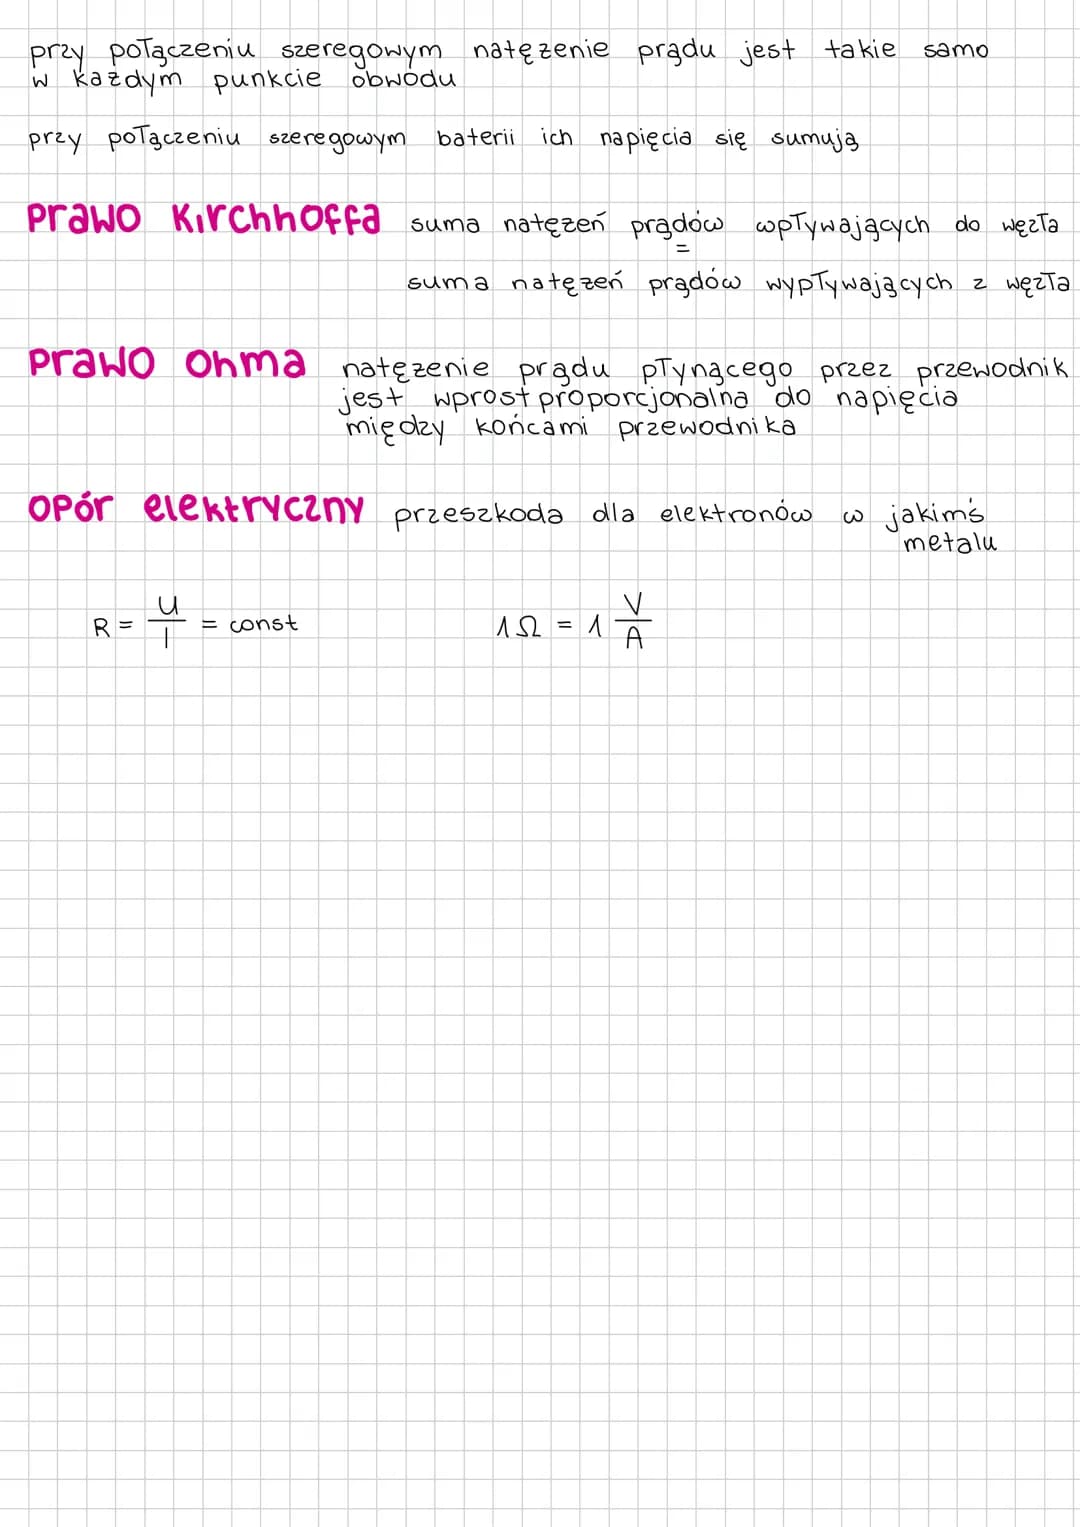 przy połączeniu szeregowym natężenie prądu jest takie samo
w każdym punkcie obwodu
przy połączeniu szeregowym baterii ich napięcia się sumują
Prawo Kirchhoffa suma natężeń prądów wpływających do węzła
=
suma natężeń prądów wypływających z węzła
Prawo Ohma natężenie prądu płynącego przez przewodnik
jest wprost proporcjonalna do napięcia
między końcami przewodnika
Opór elektryczny przeszkoda dla elektronów w jakimś
metalu
R = U/I = const 1Ω = 1 V/A